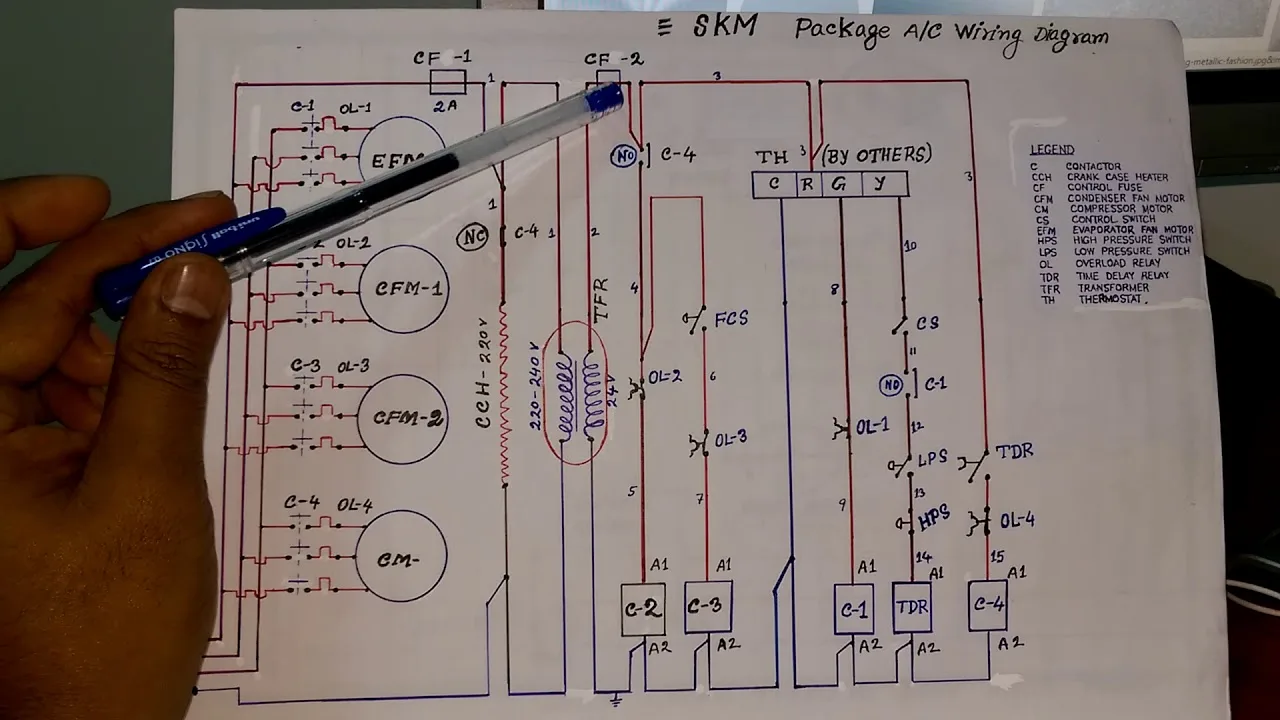 ≡ SKM Package A/C Wiring Diagram
g-metallic-fashion.jpg
CF -1
CF -2
1
3
2A
C-1 OL-1
NO C-4
TH 3 (BY OTHERS)
C R G Y
LEGEND
C CONTACTOR
CCH CRANK CASE HEATER
CF CONTROL FUSE
CFM CONDENSER FAN MOTOR
CM COMPRESSOR MOTOR
CS CONTROL SWITCH
EFM EVAPORATOR FAN MOTOR
HPS HIGH PRESSURE SWITCH
LPS LOW PRESSURE SWITCH
OL OVERLOAD RELAY
TDR TIME DELAY RELAY
TFR TRANSFORMER
TH THERMOSTAT.
3
uniball SIGNO 0.7
1
NC C-4 1 2
10
OL-2
CFM-1
TFR
4
8
FCS
CS
11
CCH-220V
220-240V
24V
C-3 OL-3
CFM-2
OL-2
6
NO C-1
12
OL-1
OL-3
LPS
TDR
13
C-4 OL-4
CM-
5
7
9
HPS
OL-4
14
15
A1 A1 A1 A1 A1
C-2 C-3 C-1 TDR C-4
A2 A2 A2 A2 A2